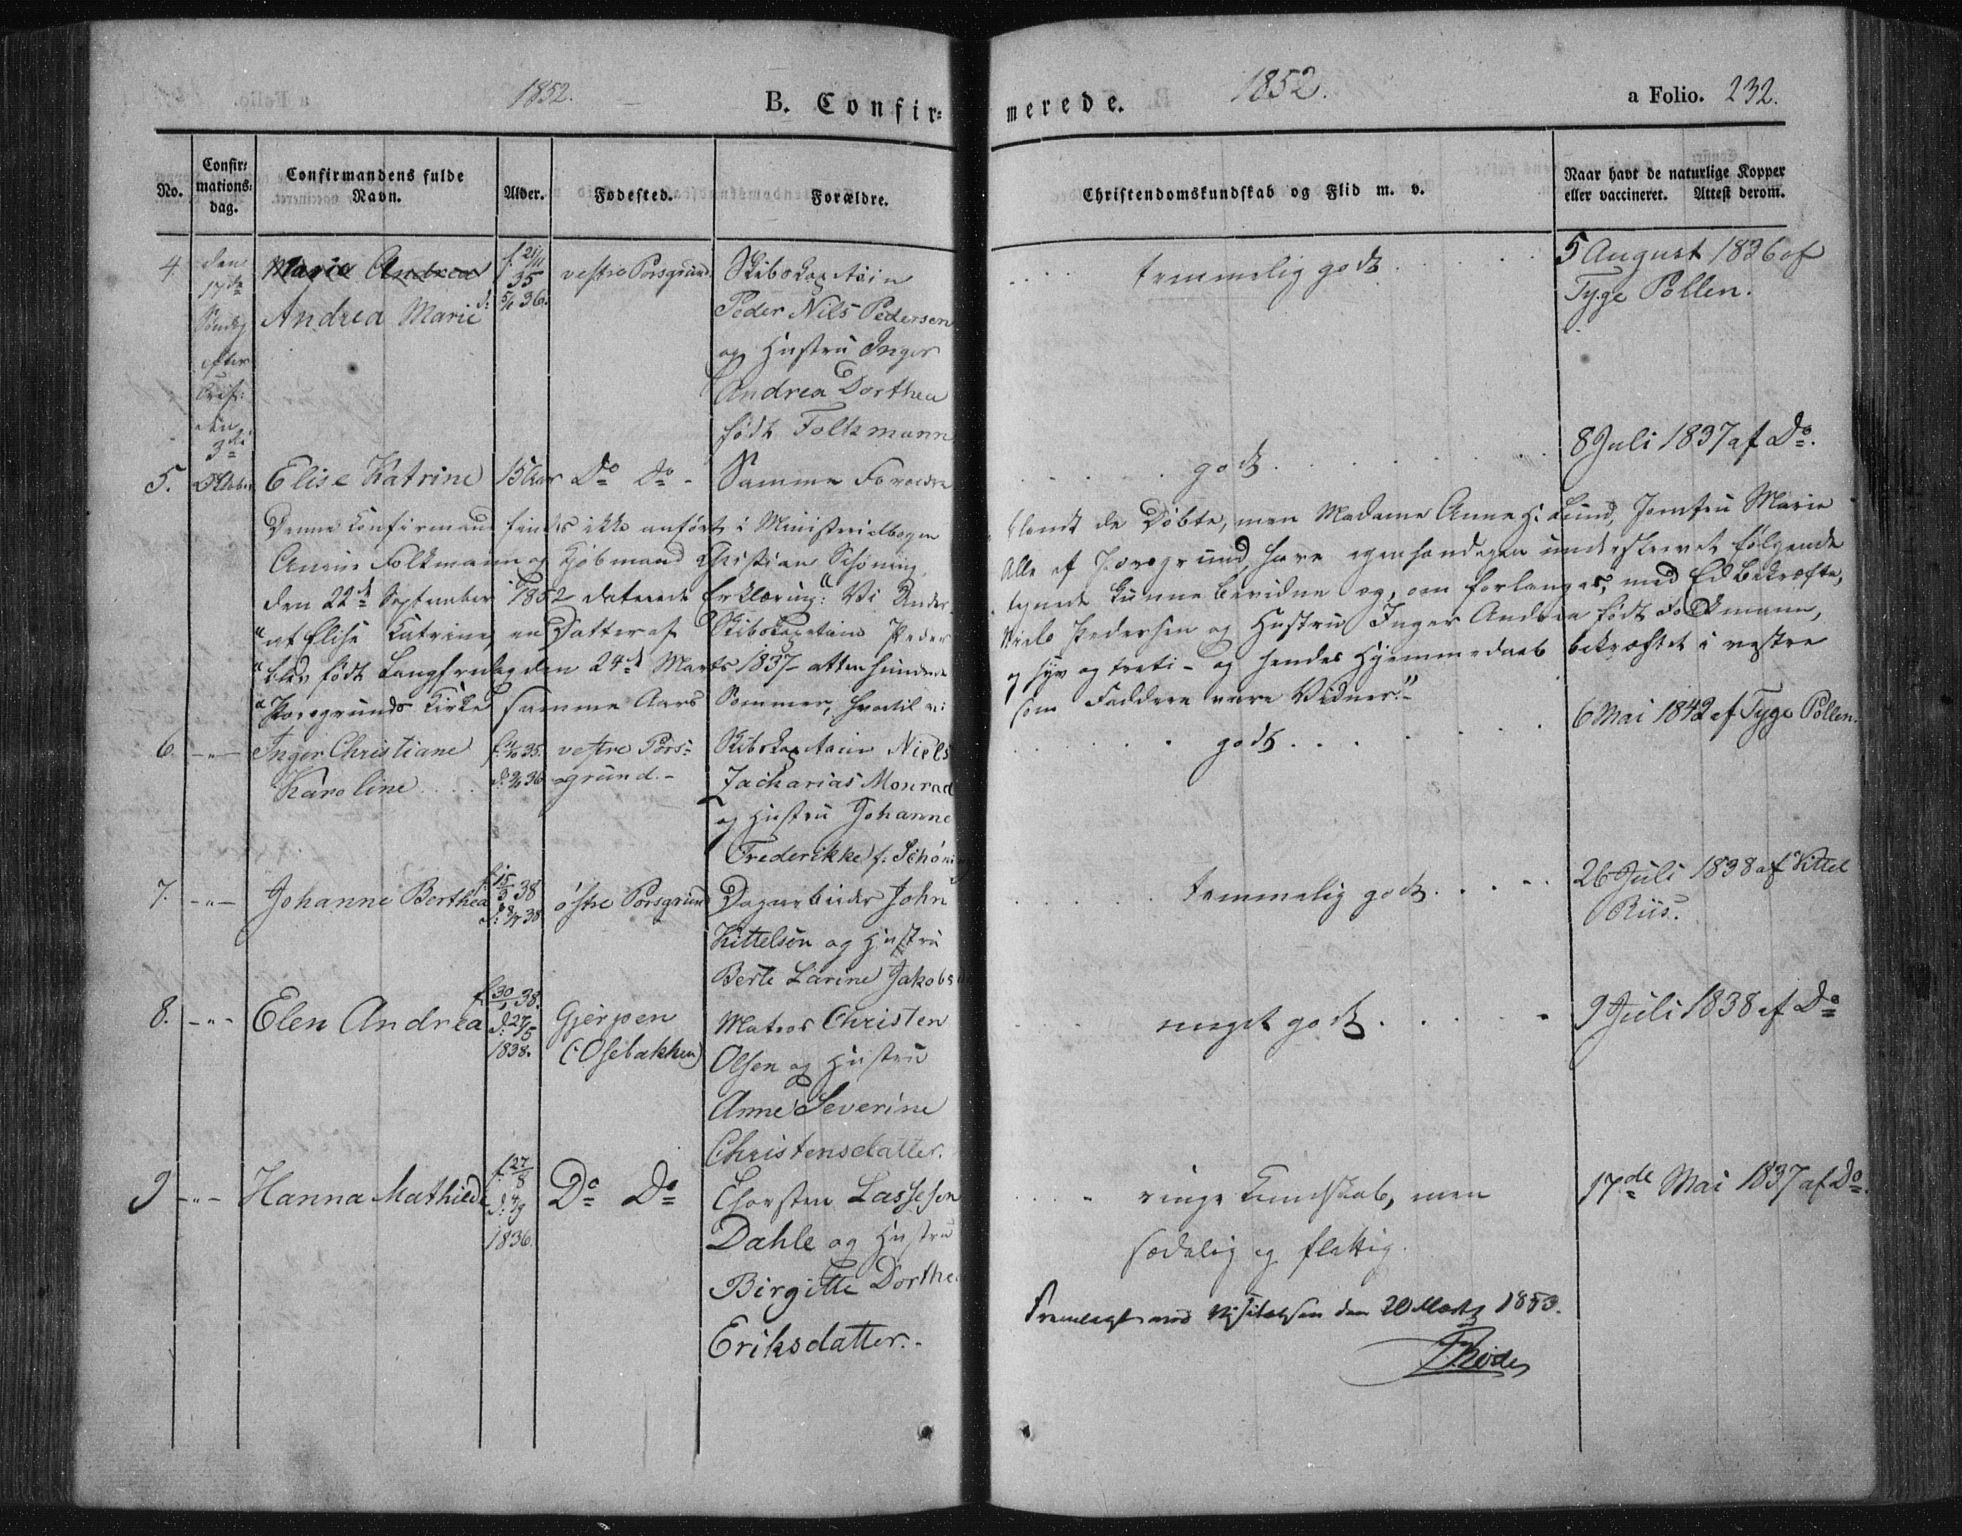 1852.
B. Confir=
merede.
1852.
a Folio. 232.
No.
Confir=
mations=
dag.
Confirmandens fulde
Navn.
Alder.
Fødested.
Forældre.
Christendomskundskab og Flid m. v.
Naar havt de naturlige Kopper
eller vaccineret. Attest derom.
4.
den
17de
Søndag
efter
Trefol:
den
3die
Octbr
Maria Andrea
Andrea Marie
f. 21/11
35
d:
36.
vestre Porsgrund
Skibskaptain
Peder Nils Pedersen
og Hustru Inger
Andrea Dorthea
født Folkmann
temmelig godt
5 August 1836 af
Tyge Pollen.
5.
Elise Katrine
15 Aar
Do Do -
Samme Forældre
godt
8 Juli 1837 af Do.
Denne Confirmand findes ikke anført i Ministerialbogen
blandt de Døbte, men Madame Anne H. Lund, Jomfru Marie
Folkmann og Kjøbmand Christian Schøning,
Alle af Porsgrund, have egenhændigen underskrevet følgende
den 22de September 1852 daterede Erklæring: "Vi Under-
tegnede kunne bevidne og, om forlanges, med Ed bekræfte,
"at Elise Katrine, en Datter af Skibskaptain Peder
Niels Pedersen og Hustru Inger Andrea født Folckmann,
"blev født Langfredag den 24de Marts 1837 atten hundrede
og syv og treti - og hendes Hjemmedaab bekræftet i vestre
"Porsgrunds Kirke samme Aars Sommer, hvortil vi
som Faddere vare Vidner."
6.
- " -
Inger Christiane
Karoline
35.
36
vestre Pors-
grund. -
Skibskaptain Niels
Zacharias Monrad
og Hustru Johanne
Frederikke f. Schøning
godt
6 Mai 1842 af Tyge Pollen.
7.
- " -
Johanne Berthea
f. 15/3 38
38
østre Porsgrund
Dagarbeider John
Kittelsen og Hustru
Berte Larine Jakobs
temmelig godt
26 Juli 1838 af Kittel
Riis.
8.
- " -
Elen Andrea
f. 30/1 38.
d. 27/5
1838.
Gjerpen
(Osebakken)
Matros Christen
Olsen og Hustru
Anne Severine
Christensdatter.
meget godt
9 Juli 1838 af Do
9
- " -
Hanna Mathilde
f. 27/8
d. 4/9
1836.
Do Do
Thorsten Lassesen
Dahle og Hustru
Birgitte Dorthea
Eriksdatter. -
ringe Kundskab, men
sædelig og flittig.
17de Mai 1837 af Do.
Fremlagt ved Visitatsen den 20 Marts 1853.